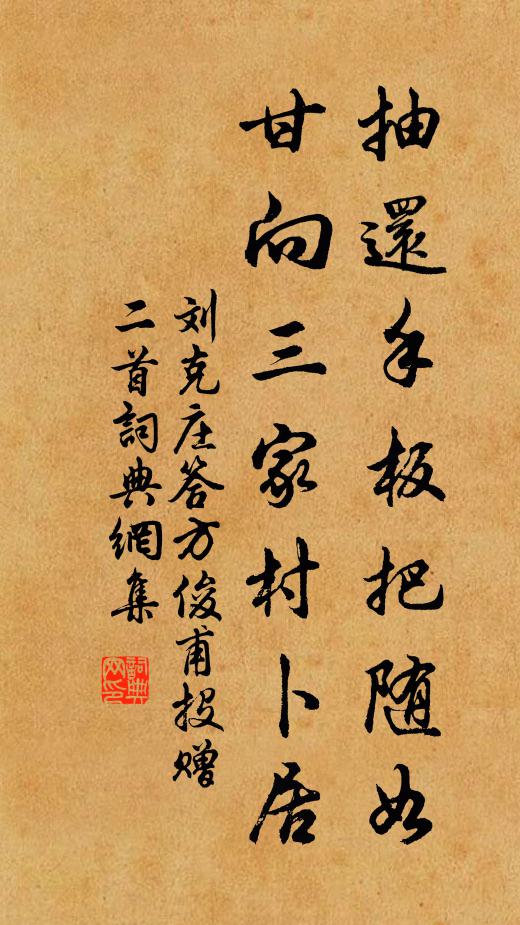 抽還手板把随如
甘向三家村卜居
刘克庄答方俊甫投赠
二首詞典網集
詞典网印